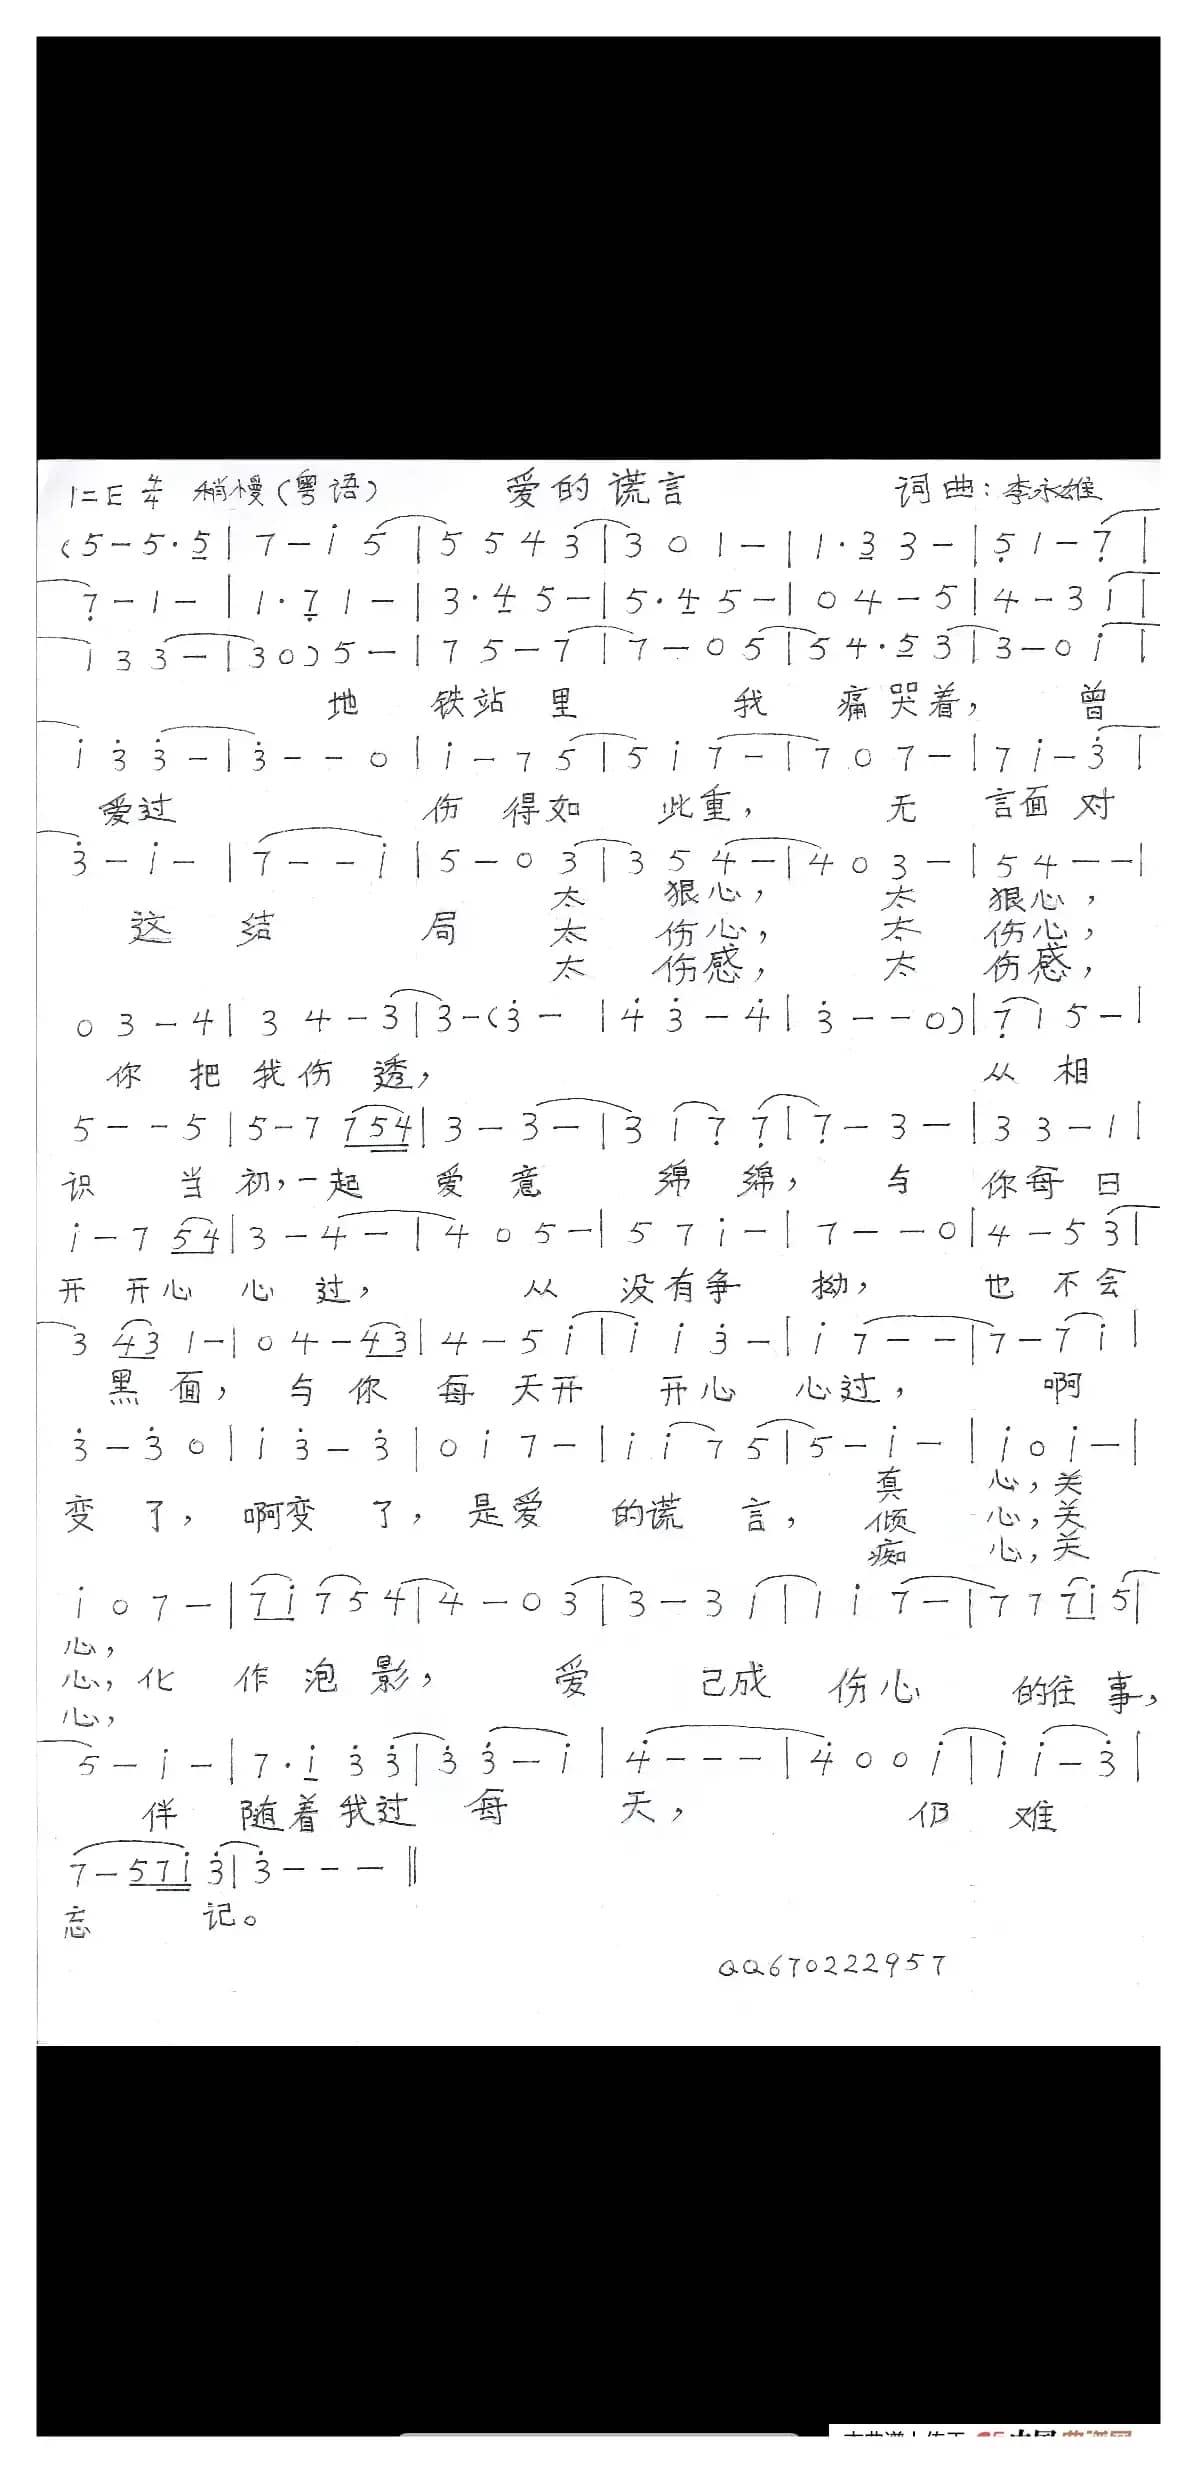 1=E 4/4 稍慢(粤语) 爱的谎言 词曲:李永雄
(5-5·5|7-i5|5543|301-|1·33-|5̣1-7̣|
7̣-1-|1·7̣1-|3·45-|5·45-|04-5|4-3i|
i33-|30)5-|75-7|7-05|54·53|3-0i|
地 铁站里 我 痛哭着, 曾
i3̇3̇-|3̇--0|i-75|5i7-|707-|7i-3̇|
爱过 伤 得如 此重, 无 言面对
3̇-i-|7--i|5-03|354-|403-|54--|
太 狠心, 太 狠心,
这 结 局 太 伤心, 太 伤心,
太 伤感, 太 伤感,
03-4|34-3|3-(3̇-|4̇3̇-4̇|3̇--0)|7̣15-|
你 把 我伤 透, 从 相
5--5|5-7754|3-3-|317̣7̣|7̣-3-|33-1|
识 当 初,一起 爱 意 绵 绵, 与 你每日
i-754|3-4-|405-|57i-|7--0|4-53|
开 开心 心 过, 从 没有争 拗, 也 不会
3431-|04-43|4-5i|ii3̇-|i7--|7-7i|
黑 面, 与 你 每 天开 开心 心过, 啊
3̇-3̇0|i3̇-3̇|0i7-|ii75|5-i-|i0i-|
真 心,关
变 了, 啊变 了, 是爱 的谎 言, 倾 心,关
痴 心,关
i07-|7i754|4-03|3-3i|ii7-|777i5|
心,
心,化 作 泡 影, 爱 已成 伤心 的往 事,
心,
5-i-|7·i3̇3̇|3̇3̇-i|4̇---|4̇00i|ii-3̇|
伴 随着我过 每 天, 仍 难
7-57i3̇|3̇---‖
忘 记。
QQ670222957